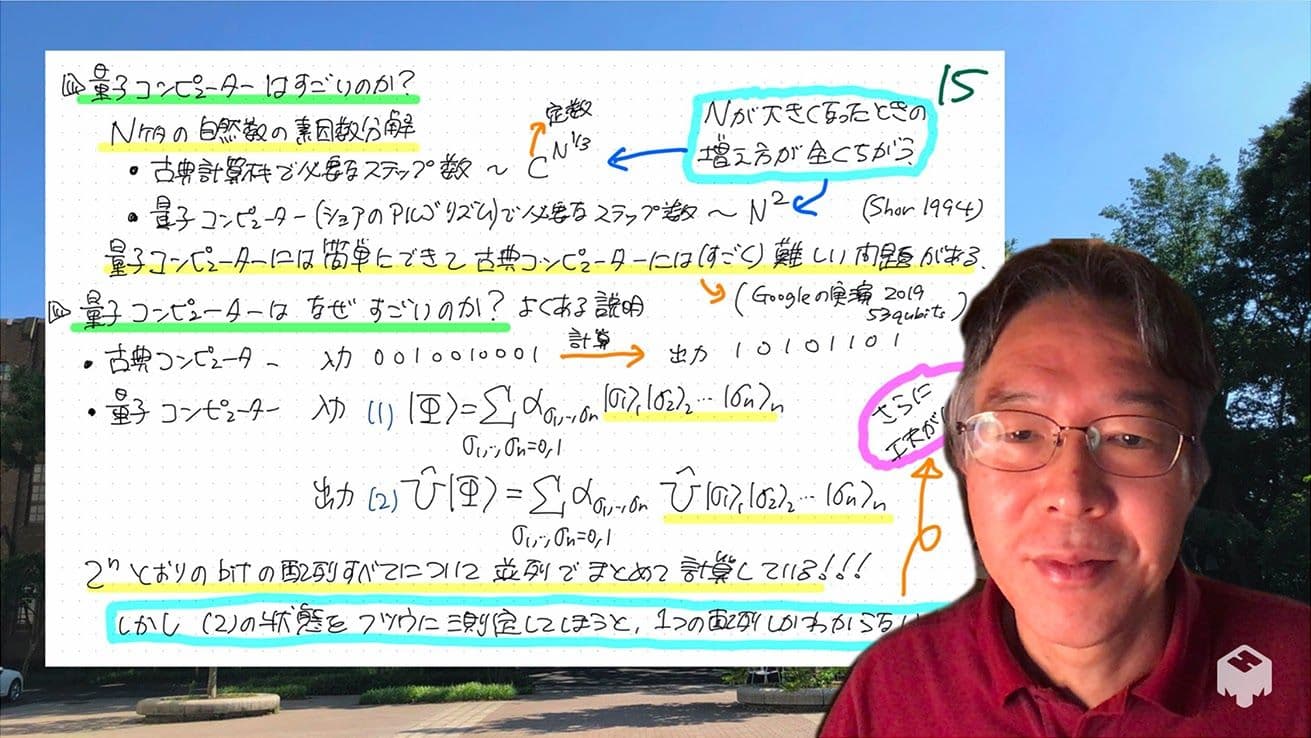 量子コンピューターはすごいのか?
15
Nケタの自然数の素因数分解
定数
Nが大きくなったときの
増え方が全くちがう。
・古典計算機で必要なステップ数 ~ C^{N^{1/3}}
・量子コンピューター(ショアのアルゴリズム)で必要なステップ数 ~ N^2 (Shor 1994)
量子コンピューターには簡単にできて古典コンピューターには(すごく)難しい問題がある.
(Googleの実演 2019
53qubits)
量子コンピューターは なぜ すごいのか? よくある説明
・古典コンピューター 入力 0010010001 計算 → 出力 10101101
・量子コンピューター 入力 (1) |Φ⟩=∑α_{σ1,…,σn}|σ1⟩_1|σ2⟩_2…|σn⟩_n
σ1,…,σn=0,1
さらに
工夫が
出力 (2) Û|Φ⟩=∑α_{σ1,…,σn} Û|σ1⟩_1|σ2⟩_2…|σn⟩_n
σ1,…,σn=0,1
2^n とおりの bit の配列すべてについて 並列で まとめて 計算している!!!
しかし (2)の状態を フツウに 測定してしまうと, 1つの配列しかわからない